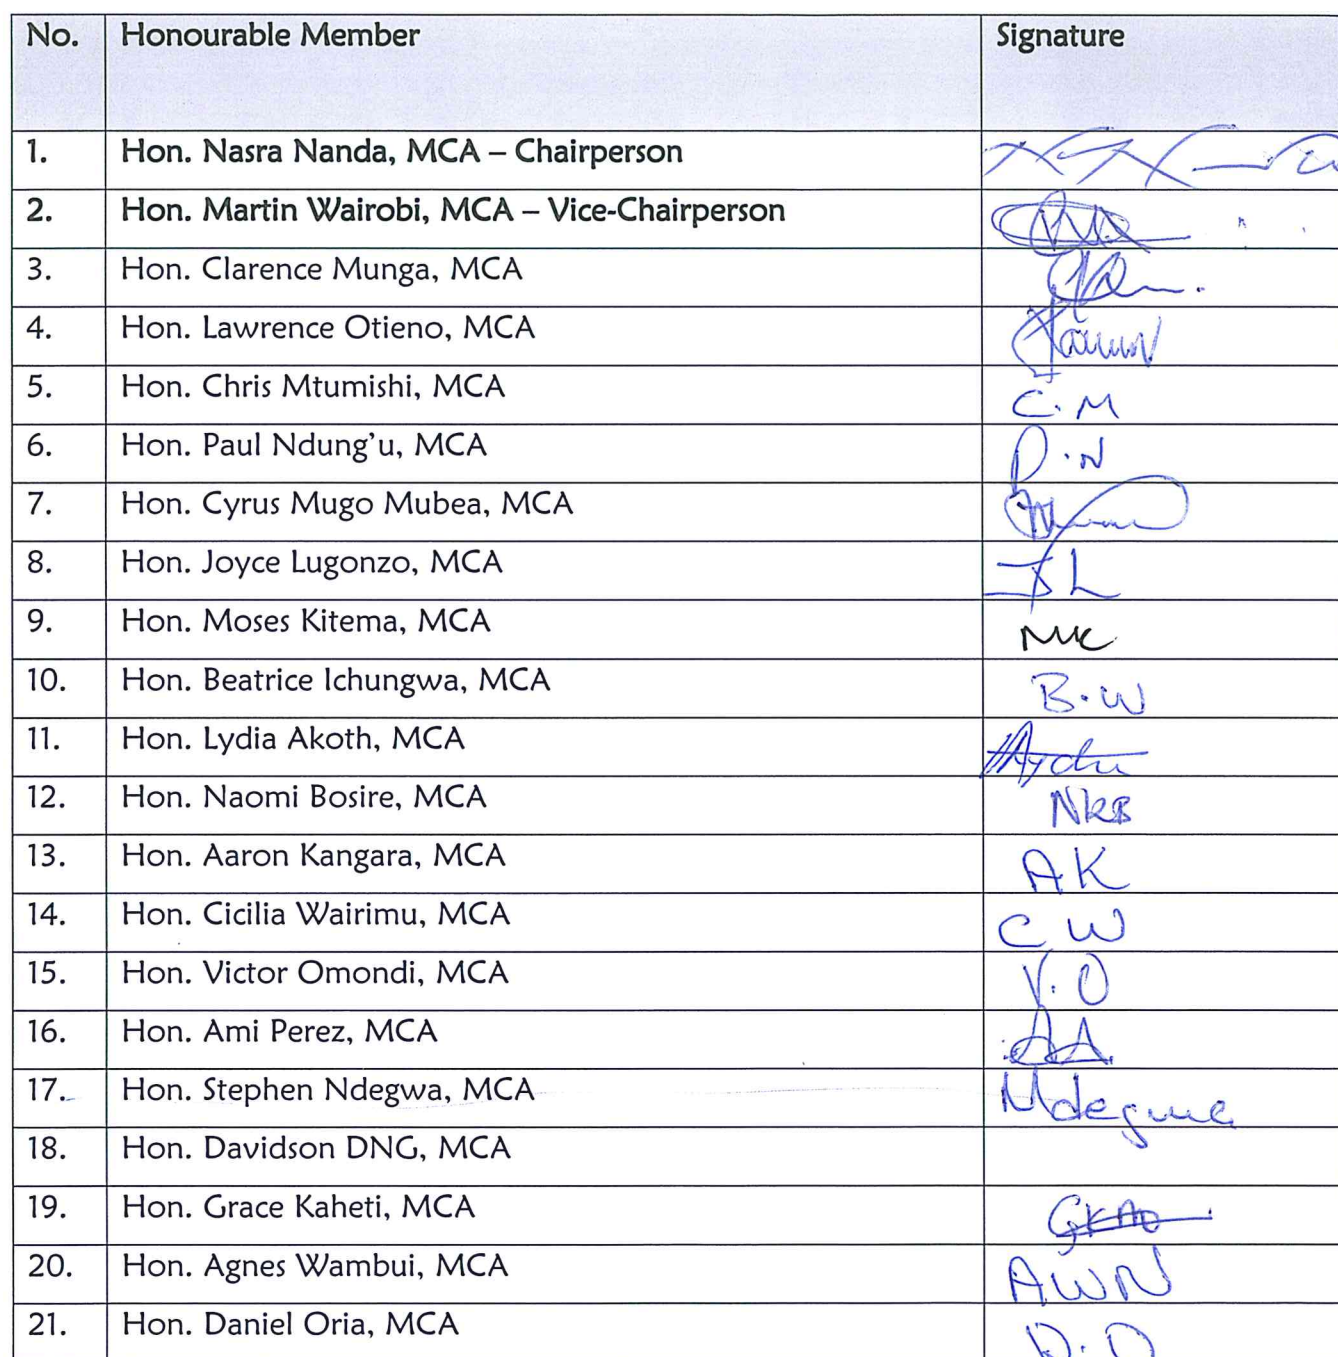 No. Honourable Member Signature
1. Hon. Nasra Nanda, MCA – Chairperson
2. Hon. Martin Wairobi, MCA – Vice-Chairperson
3. Hon. Clarence Munga, MCA
4. Hon. Lawrence Otieno, MCA
5. Hon. Chris Mtumishi, MCA C.M
6. Hon. Paul Ndung’u, MCA P.N
7. Hon. Cyrus Mugo Mubea, MCA
8. Hon. Joyce Lugonzo, MCA JL
9. Hon. Moses Kitema, MCA MK
10. Hon. Beatrice Ichungwa, MCA B.W
11. Hon. Lydia Akoth, MCA
12. Hon. Naomi Bosire, MCA NKB
13. Hon. Aaron Kangara, MCA AK
14. Hon. Cicilia Wairimu, MCA C W
15. Hon. Victor Omondi, MCA V.O
16. Hon. Ami Perez, MCA
17. Hon. Stephen Ndegwa, MCA Ndegwa
18. Hon. Davidson DNG, MCA
19. Hon. Grace Kaheti, MCA
20. Hon. Agnes Wambui, MCA AWN
21. Hon. Daniel Oria, MCA D.O